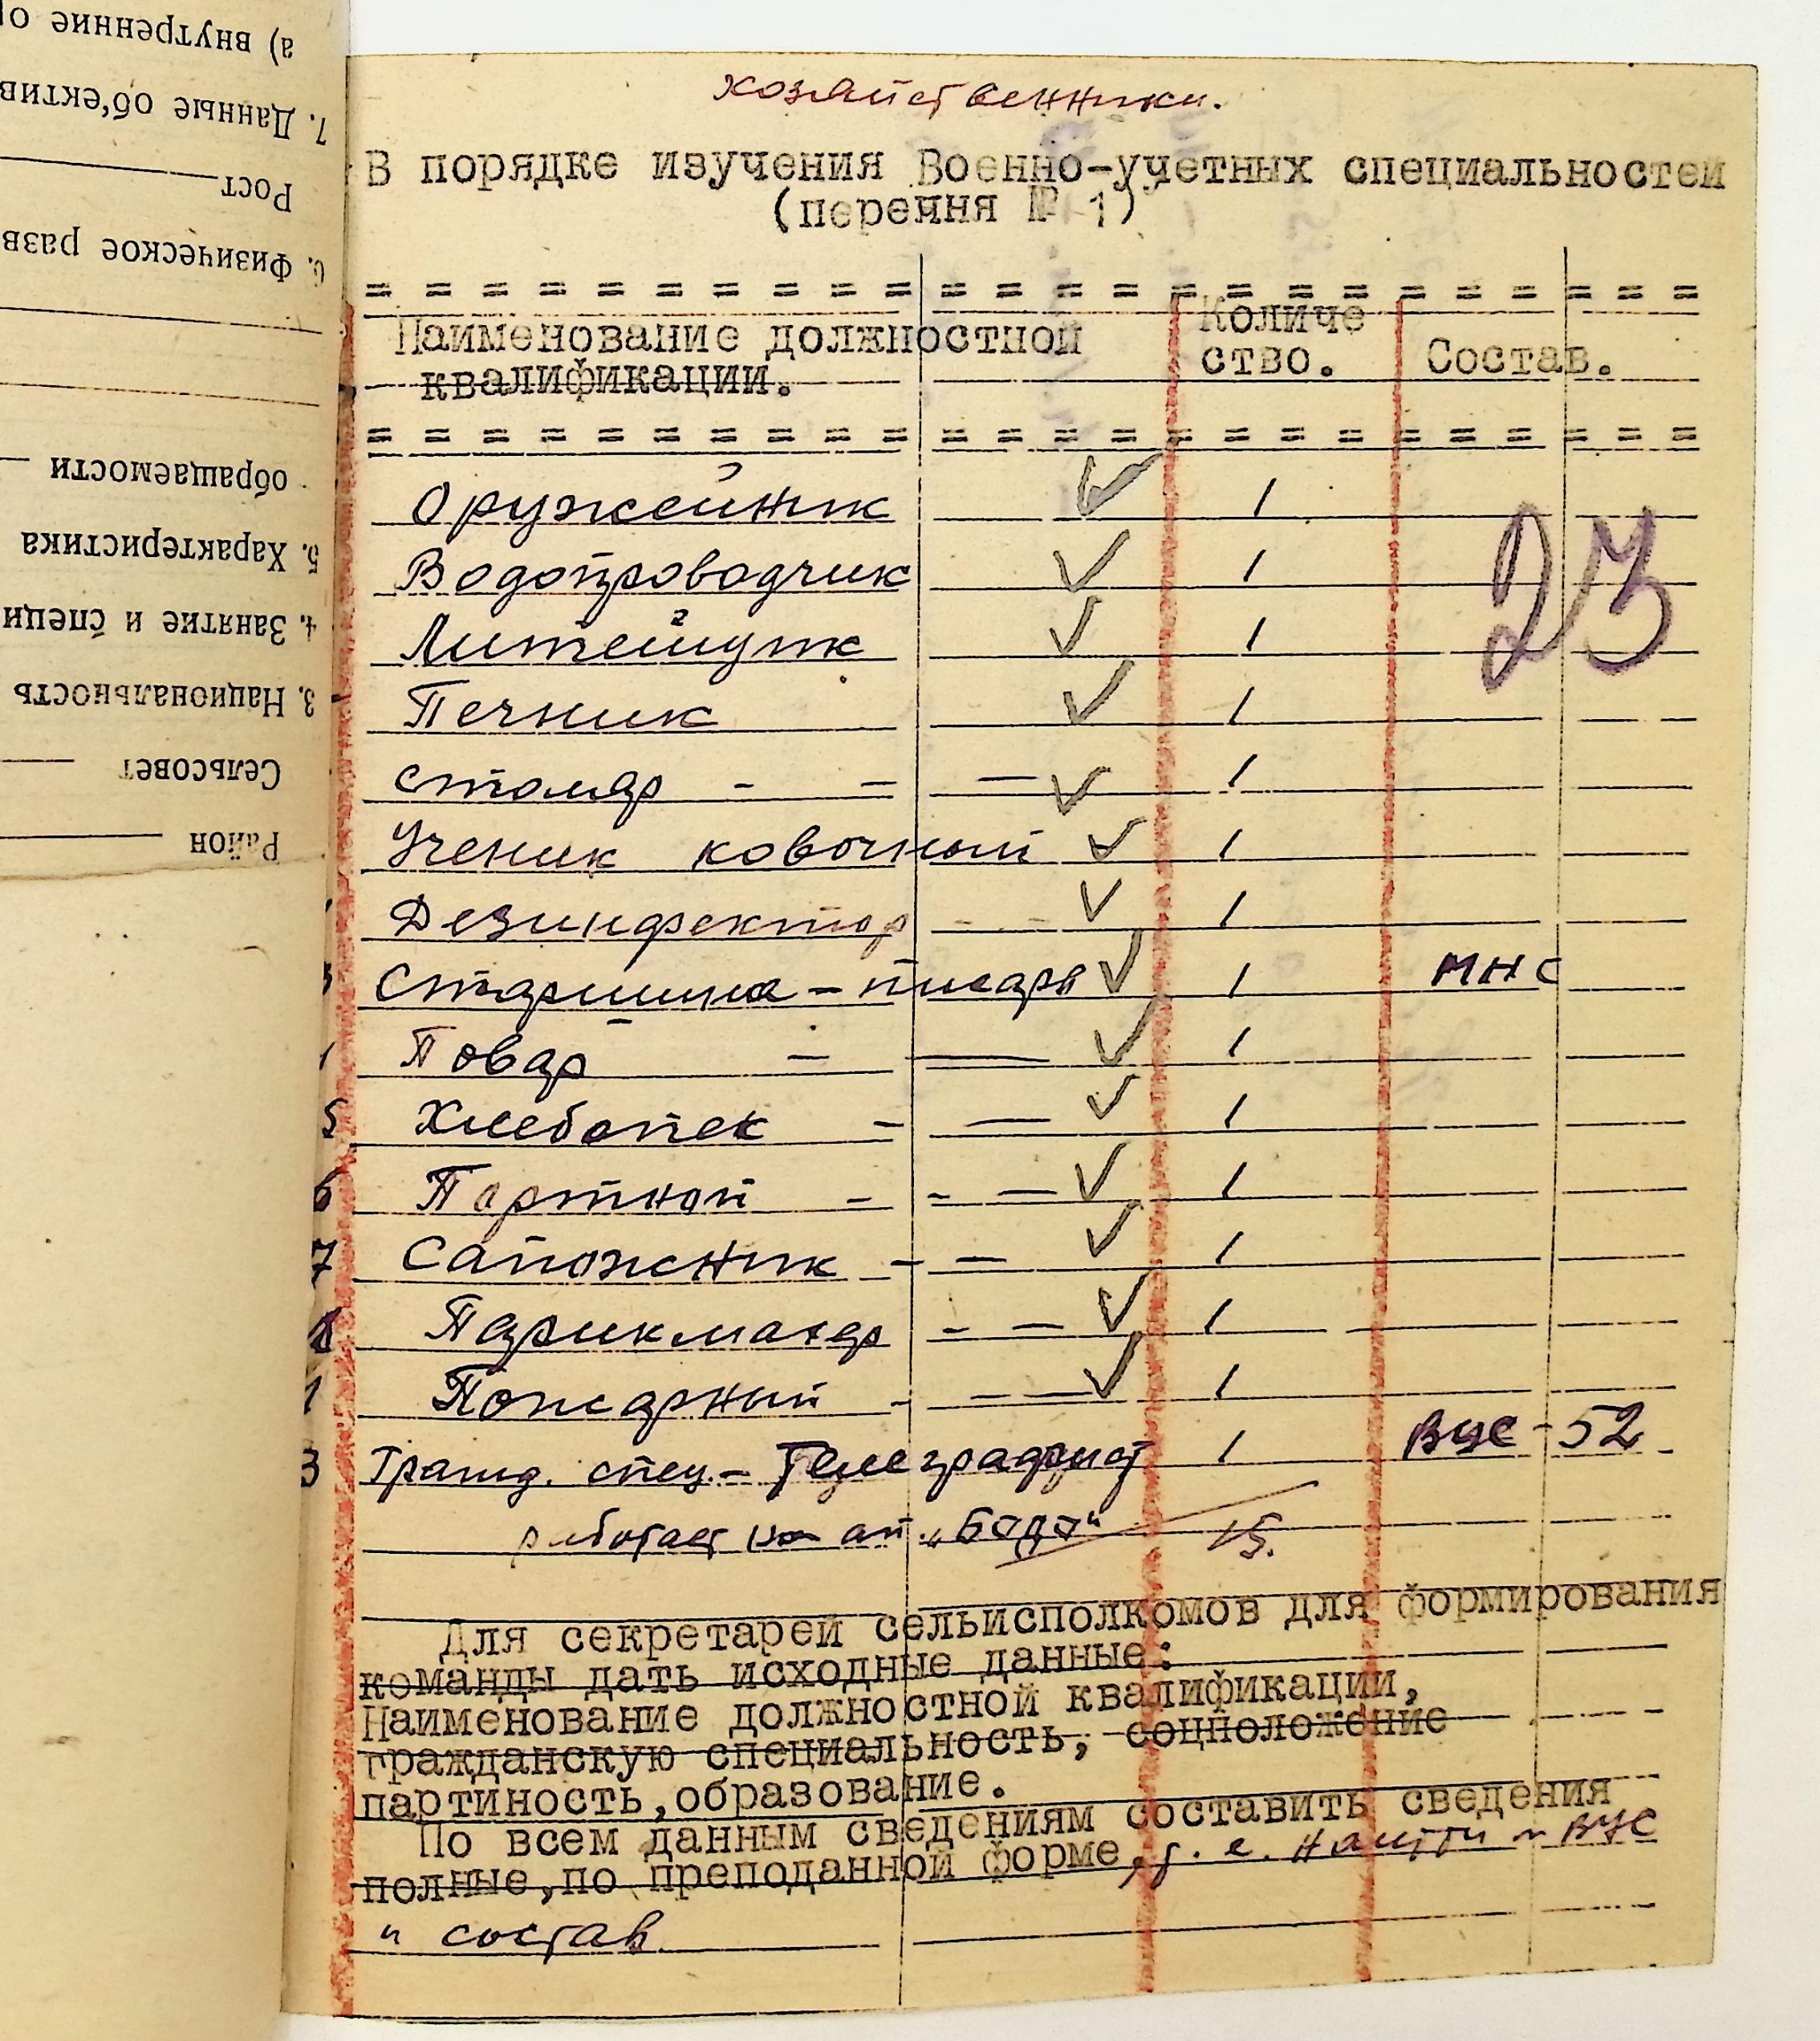 хозяйственники.
В порядке изучения Военно-учетных специальностей
(перечня № 1)
Наименование должностной квалификации.
Количе
ство.
Состав.
Оружейник 1
23
Водопроводчик 1
Литейщик 1
Печник 1
столяр - - — 1
Ученик ковочный 1
Дезинфектор - - 1
Старшина - писарь 1 МНС
1 Повар — — 1
5 Хлебопек - — 1
6 Портной - - — 1
7 Сапожник - — 1
8 Парикмахер - — 1
1 Пожарный - - — 1
3 Гражд. спец. - Телеграфист 1 ВУС-52
работает на ап. „Бодо“ 15.
Для секретарей сельисполкомов для формирования
команды дать исходные данные:
Наименование должностной квалификации,
гражданскую специальность, соцположение
партиность, образование.
По всем данным сведениям составить сведения
полные, по преподанной форме, т. е. найти и ВУС
и состав
а) внутренние ор
7. Данные об'ектив
Рост
6. Физическое разв
обращаемости
5. Характеристика
4. Занятие и специ
3. Национальность
Сельсовет
Район